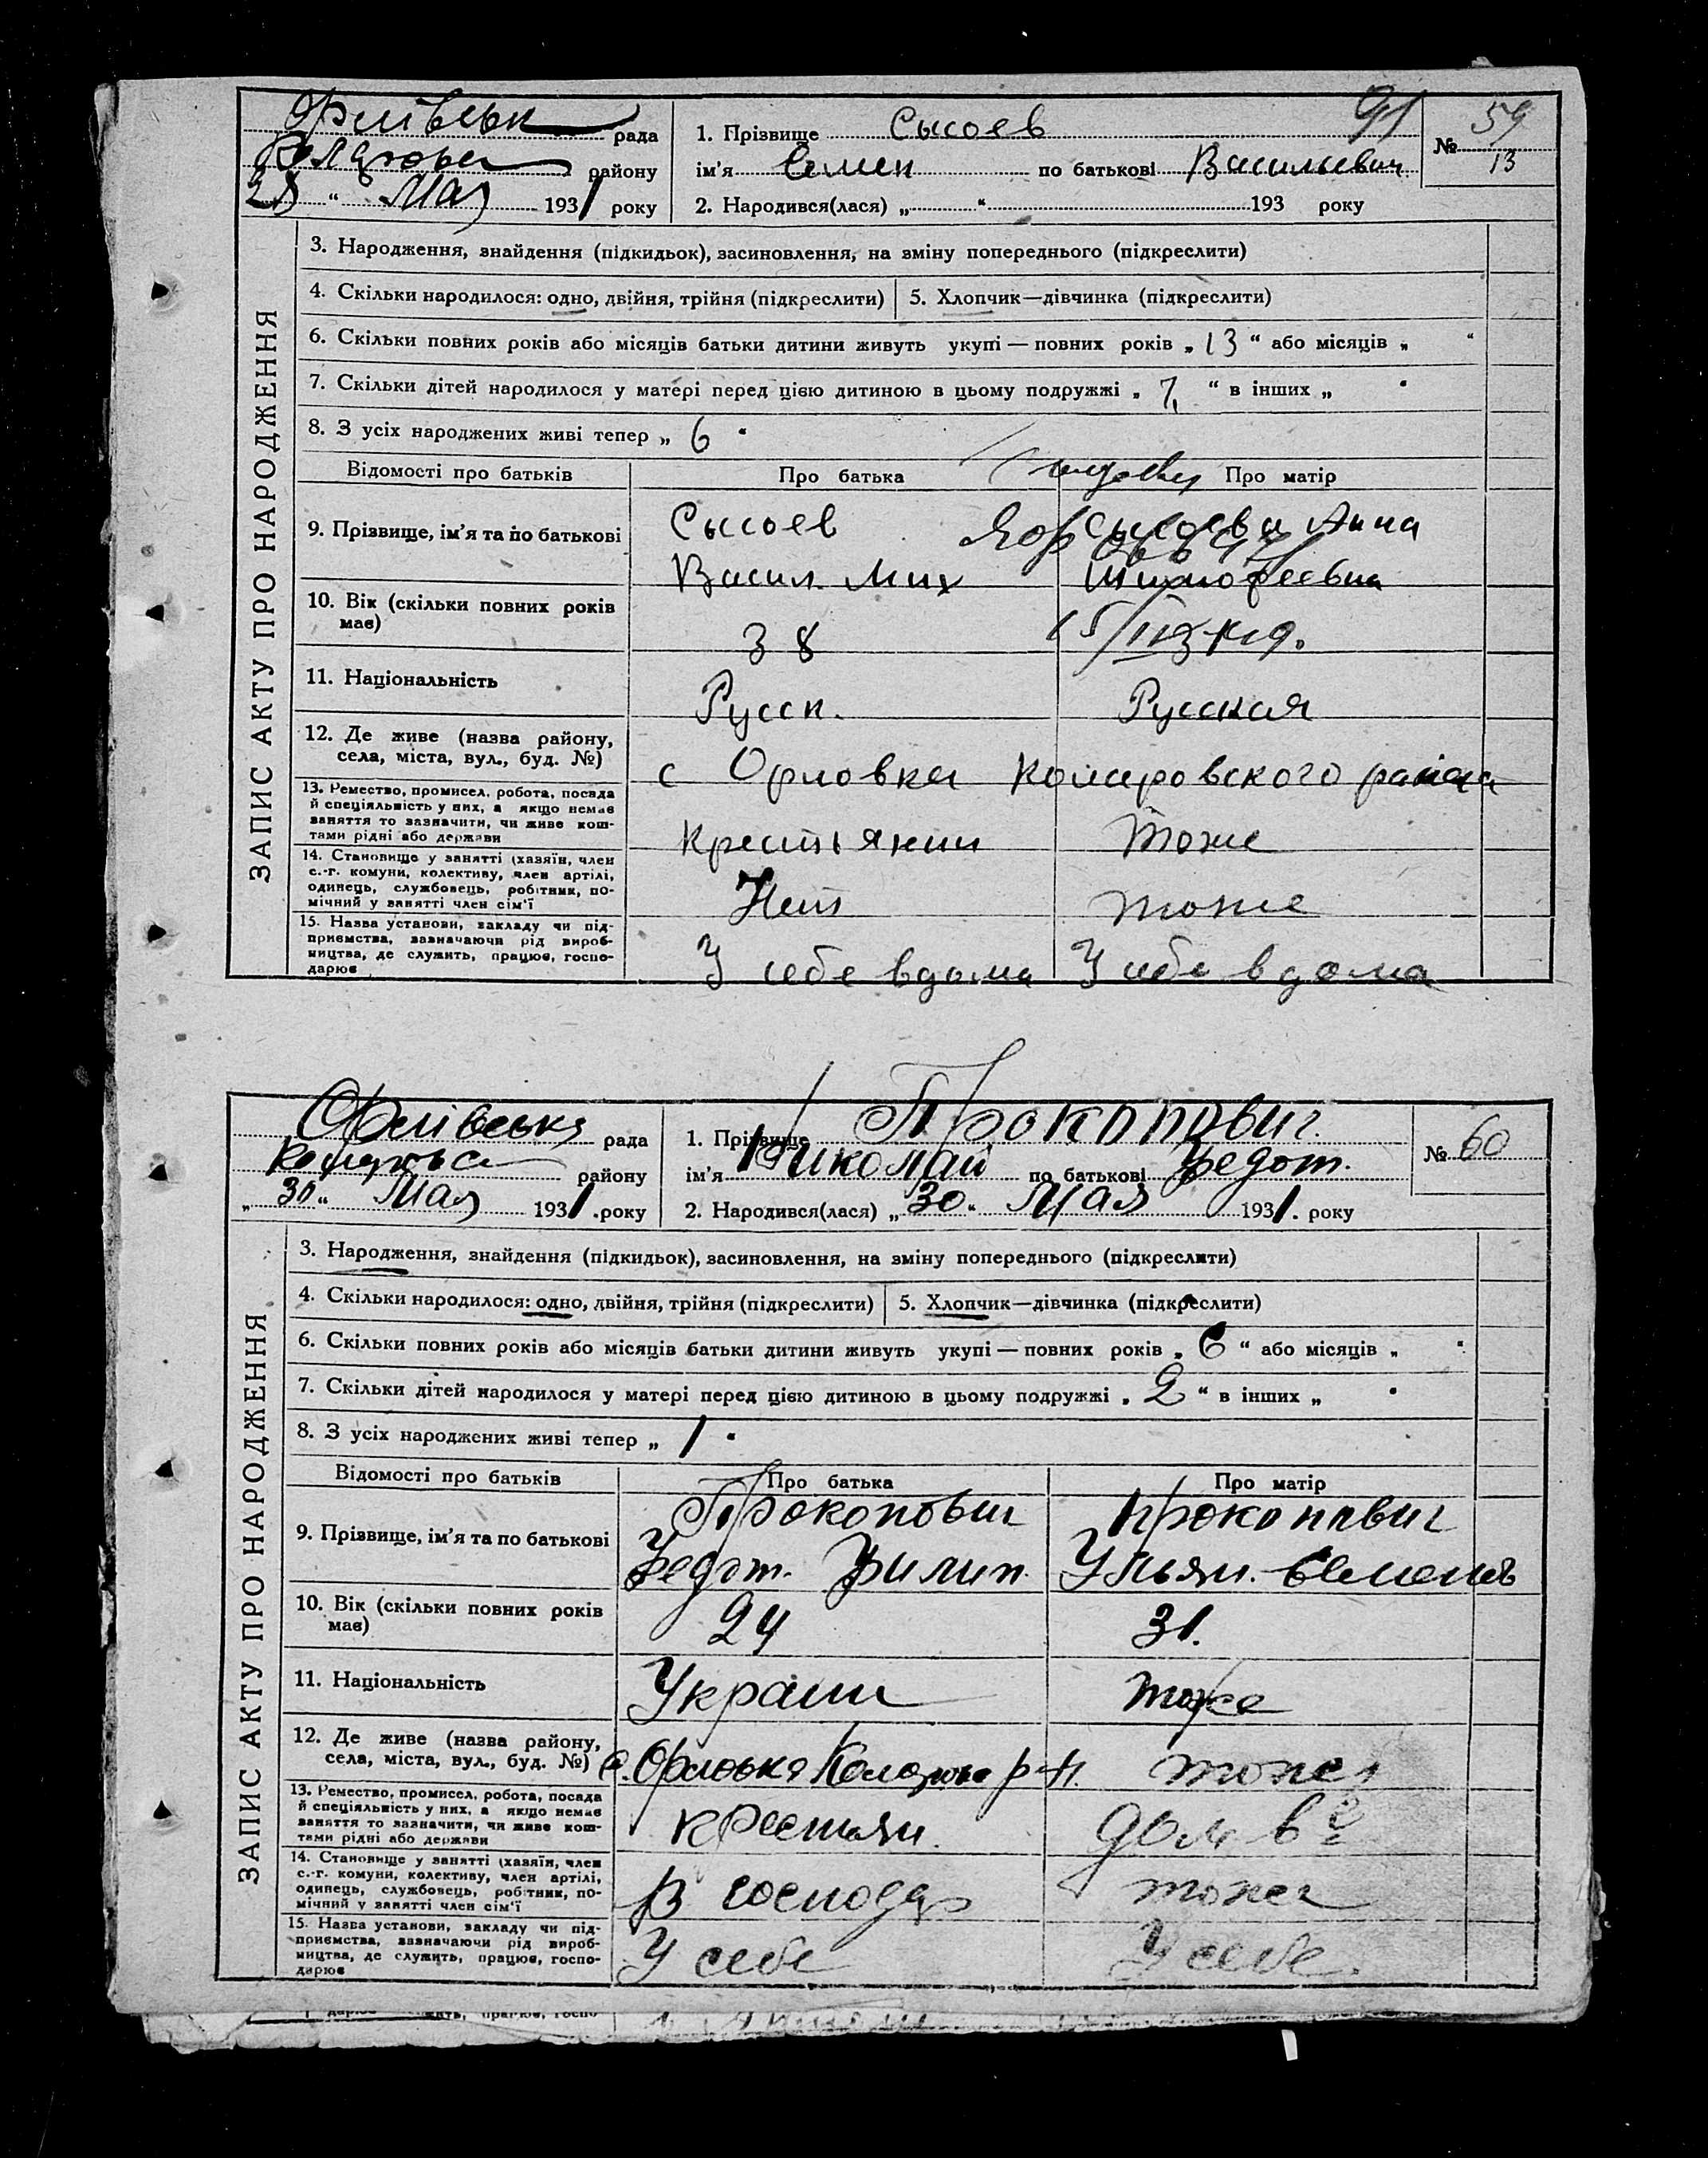 Орлівськ рада
району
28 " Мая 1931 року
1. Прізвище Сысоев
91
ім'я Семен по батькові Васильевич
2. Народився(лася) „ “ 193 року
№ 59
13
ЗАПИС АКТУ ПРО НАРОДЖЕННЯ
3. Народження, знайдення (підкидьок), засиновлення, на зміну попереднього (підкреслити)
4. Скільки народилося: одно, двійня, трійня (підкреслити) 5. Хлопчик—дівчинка (підкреслити)
6. Скільки повних років або місяців батьки дитини живуть укупі — повних років „ 13 “ або місяців „ “
7. Скільки дітей народилося у матері перед цією дитиною в цьому подружжі „ 7 “ в інших „ “
8. З усіх народжених живі тепер „ 6 “
Відомості про батьків Про батька Про матір
9. Прізвище, ім'я та по батькові
Сысоев Сысоева Анна
Васил. Мих Тимофеевна
10. Вік (скільки повних років
має)
38
11. Національність
Русск. Русская
12. Де живе (назва району,
села, міста, вул., буд. №)
с Орловка Комаровского района
13. Ремество, промисел, робота, посада
й спеціяльність у них, а якщо немає
заняття то зазначити, чи живе кош-
тами рідні або держави
Крестьянин тоже
14. Становище у занятті (хазяїн, член
с.-г. комуни, колективу, член артілі,
одинець, службовець, робітник, по-
мічний у занятті член сім'ї
Нет тоже
15. Назва установи, закладу чи під-
приємства, зазначаючи рід вироб-
ництва, де служить, працює, госпо-
дарює
У себе вдома У себе вдома
Орлівська рада
району
„ 30 “ Мая 1931 . року
1. Прізвище Прокопович
ім'я Николай по батькові Федот.
2. Народився(лася) „ 30 “ Мая 1931. року
№ 60
ЗАПИС АКТУ ПРО НАРОДЖЕННЯ
3. Народження, знайдення (підкидьок), засиновлення, на зміну попереднього (підкреслити)
4. Скільки народилося: одно, двійня, трійня (підкреслити) 5. Хлопчик—дівчинка (підкреслити)
6. Скільки повних років або місяців батьки дитини живуть укупі — повних років „ 6 “ або місяців „ “
7. Скільки дітей народилося у матері перед цією дитиною в цьому подружжі „ 2 “ в інших „ “
8. З усіх народжених живі тепер „ 1 “
Відомості про батьків Про батька Про матір
9. Прізвище, ім'я та по батькові
Прокопович Прокопович
Федот. Филип. Ульян. Семенов
10. Вік (скільки повних років
має)
24 31.
11. Національність
Украин тоже
12. Де живе (назва району,
села, міста, вул., буд. №)
с. Орловка р-н. тоже
13. Ремество, промисел, робота, посада
й спеціяльність у них, а якщо немає
заняття то зазначити, чи живе кош-
тами рідні або держави
Крестьян.
14. Становище у занятті (хазяїн, член
с.-г. комуни, колективу, член артілі,
одинець, службовець, робітник, по-
мічний у занятті член сім'ї
В господар тоже
15. Назва установи, закладу чи під-
приємства, зазначаючи рід вироб-
ництва, де служить, працює, госпо-
дарює
У себе У себе.